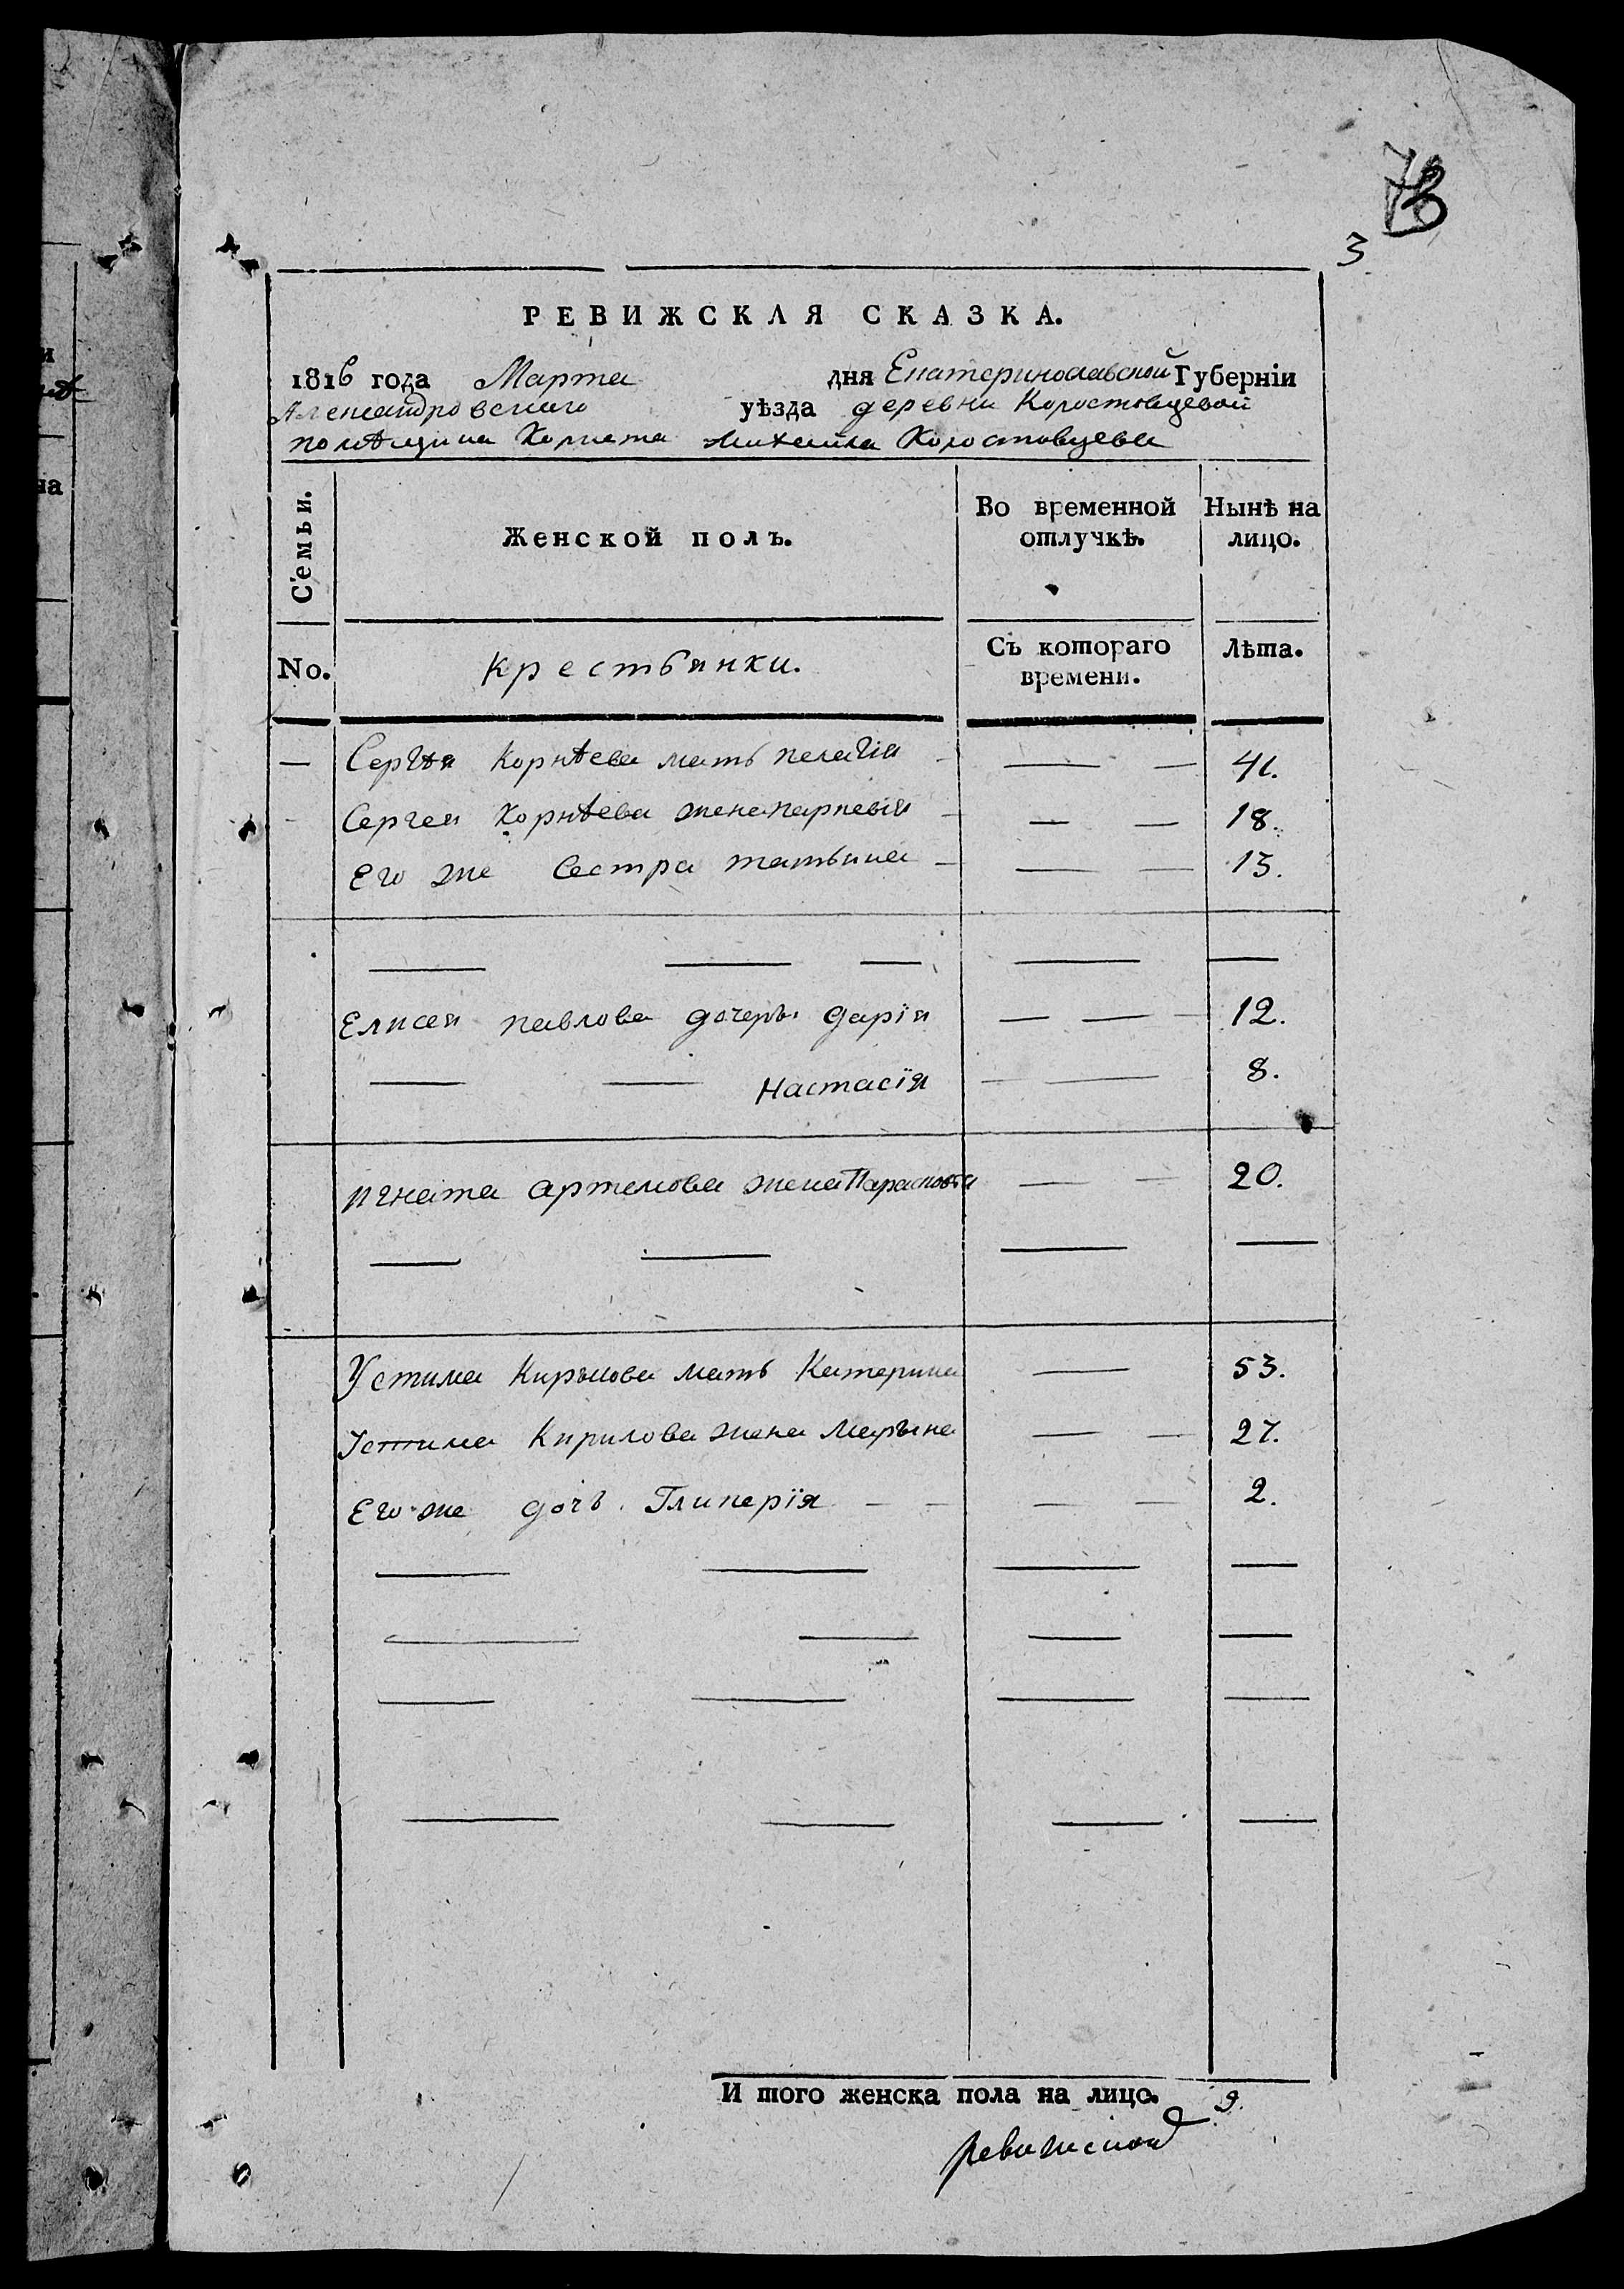 3
РЕВИЖСКАЯ СКАЗКА.
1816 года Марта дня Екатеринославской Губерніи
Александровского уѣзда деревни Коростовцевой
помѣщика Корнета Михаила Коростовцева
Семьи.
Женской полъ.
Во временной отлучкѣ.
Нынѣ на лицо.
No.
крестьянки.
Съ котораго времени.
Лѣта.
— Сергѣя Корнѣева мать пелагія — — 41.
Сергея Корнѣева жена — — 18.
Его же Сестра татьяна — — 13.
Елисея павлова дочерьи дарія — — 12.
— — Настасія — — 8.
игната артемова жена Парасковѣя — — 20.
Устима Кирылова мать Катерина — 53.
Устима Кирилова жена Марьына — — 27.
Его же дочь Гликерія — — 2.
И того женска пола на лицо. 9.
ревижской